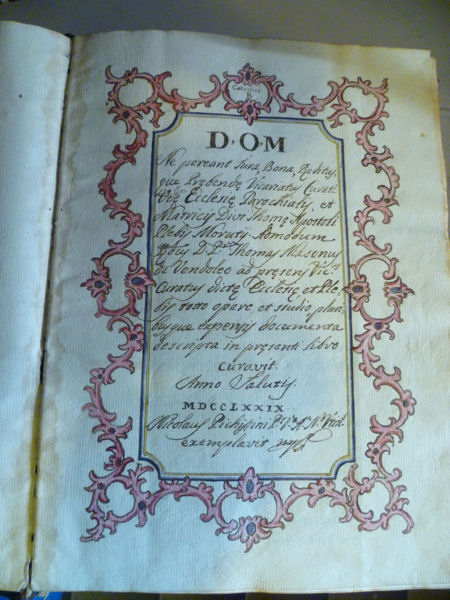 Catastico
B
D·O·M
Ne pereant Jura, Bona, Reditus,
quę Prębendę Vicariatus Curati
Vię Ecclesię Parochialis, et
Matricis Divi Thomę Apostoli
Plebis Morutij. Admodum
D. Thomas Masonus
de Vendoleo ad pręsens Vic.
Curatus dictę Ecclesię et Ple
bis toto opere, et studio, pluri
busque expensis documenta
descripta in pręsenti libro
curavit.
Anno Salutis.
MDCCLXXIX
Nicolaus Pichisini P. V. N.
exemplavit